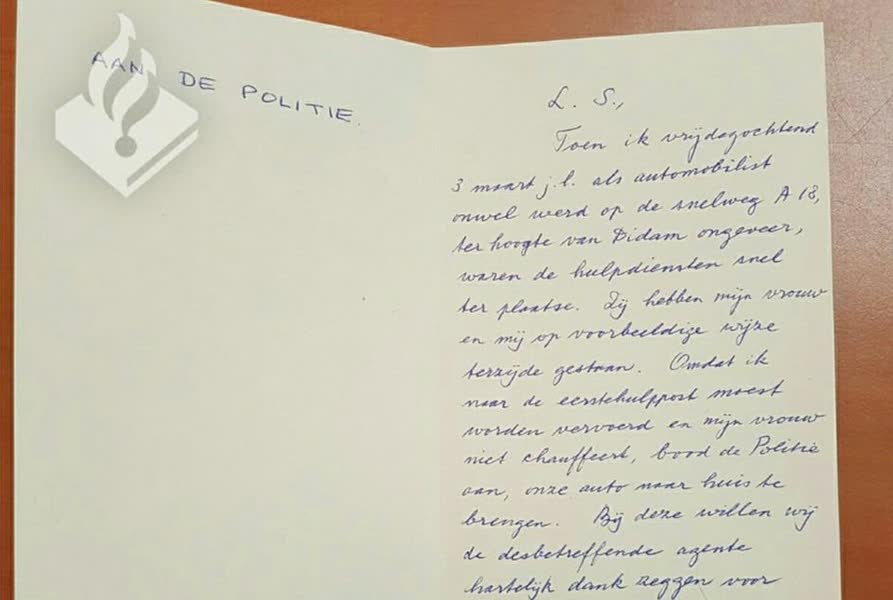 AAN DE POLITIE.
L. S.,
Toen ik vrijdagochtend
3 maart j.l. als automobilist
onwel werd op de snelweg A 18,
ter hoogte van Didam ongeveer,
waren de hulpdiensten snel
ter plaatse. Zij hebben mijn vrouw
en mij op voorbeeldige wijze
terzijde gestaan. Omdat ik
naar de eerstehulppost moest
worden vervoerd en mijn vrouw
niet chauffeert, bood de Politie
aan, onze auto naar huis te
brengen. Bij deze willen wij
de desbetreffende agente
hartelijk dank zeggen voor